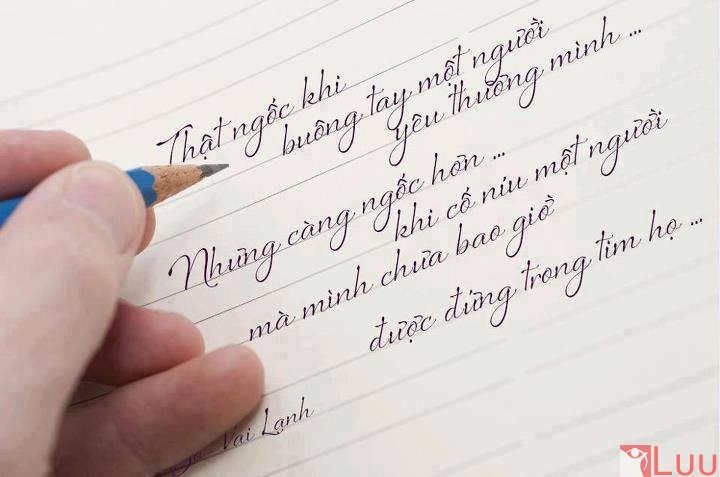 Thật ngốc khi
buông tay một người
yêu thương mình ...
Nhưng càng ngốc hơn ...
khi cố níu một người
mà mình chưa bao giờ
được đứng trong tim họ ...
Vai Lạnh
LUU